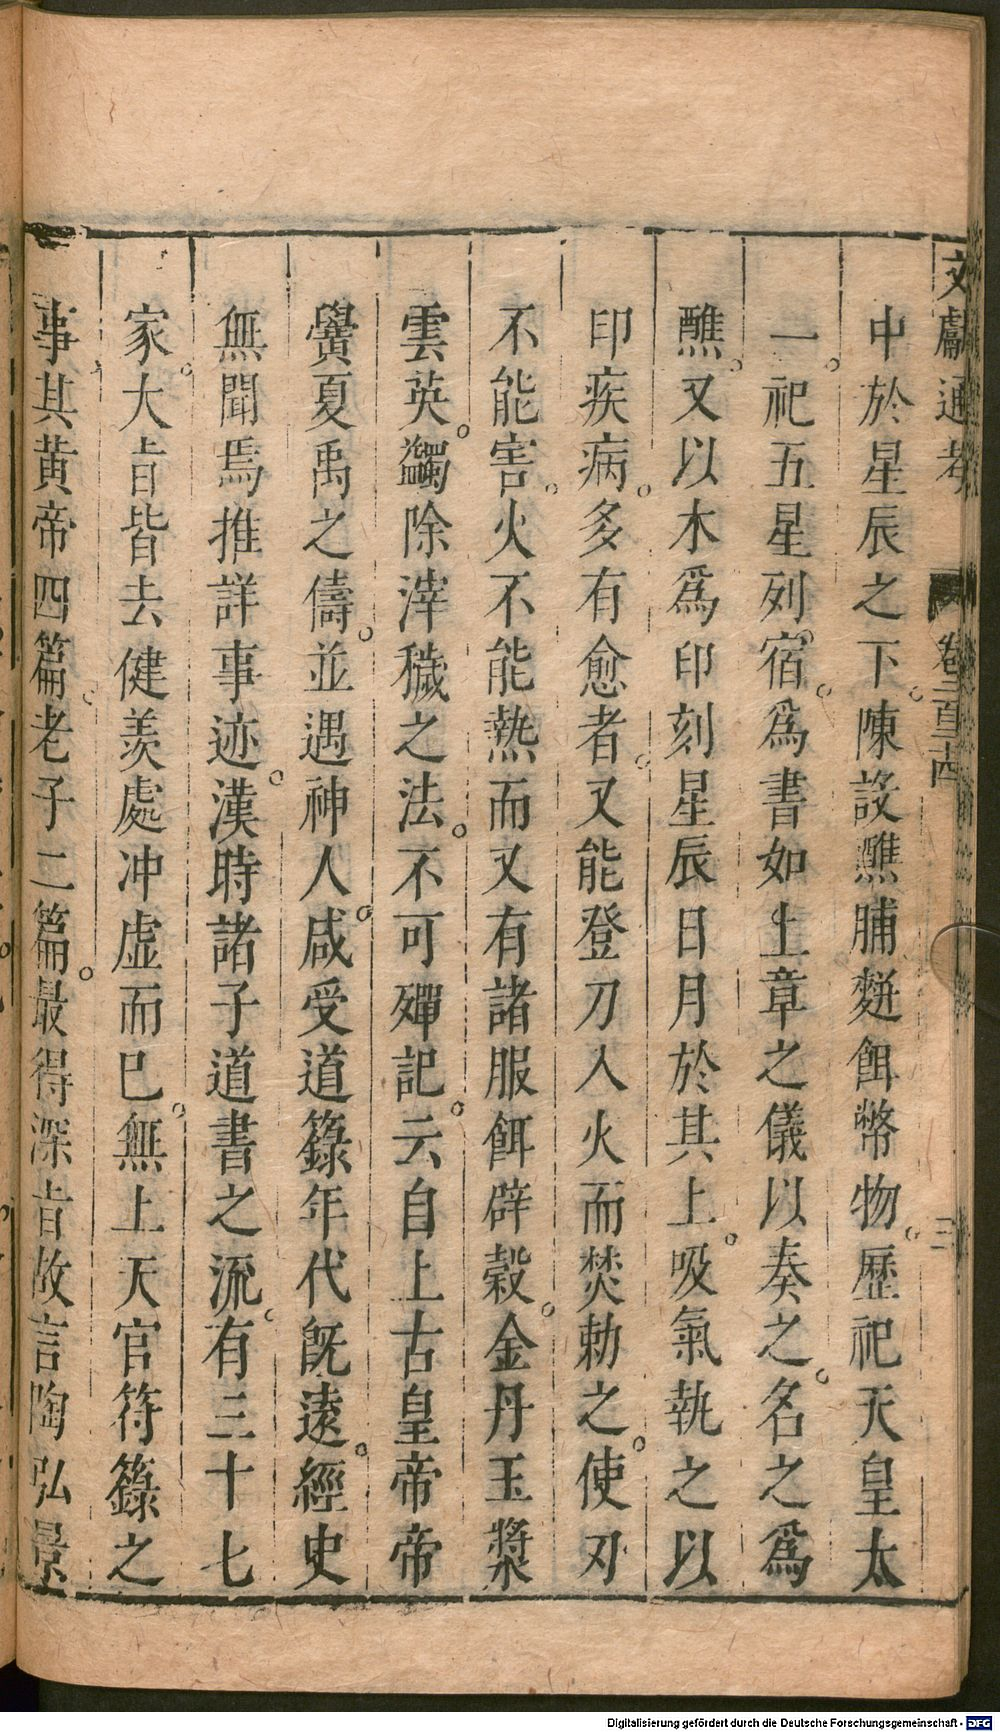 文獻通考 卷二百二十四 三
中於星辰之下陳設醮脯麪餌幣物歷祀天皇太
一祀五星列宿爲書如上章之儀以奏之名之爲
醮又以木爲印刻星辰日月於其上吸氣執之以
印疾病多有愈者又能登刀入火而焚勅之使刃
不能害火不能熱而又有諸服餌辟穀金丹玉漿
雲英蠲除滓穢之法不可殫記云自上古皇帝帝
嚳夏禹之儔並遇神人咸受道籙年代旣遠經史
無聞焉推詳事迹漢時諸子道書之流有三十七
家大旨皆去健羡處冲虛而已無上天官符籙之
事其黄帝四篇老子二篇最得深旨故言陶弘景
Digitalisierung gefördert durch die Deutsche Forschungsgemeinschaft - DFG